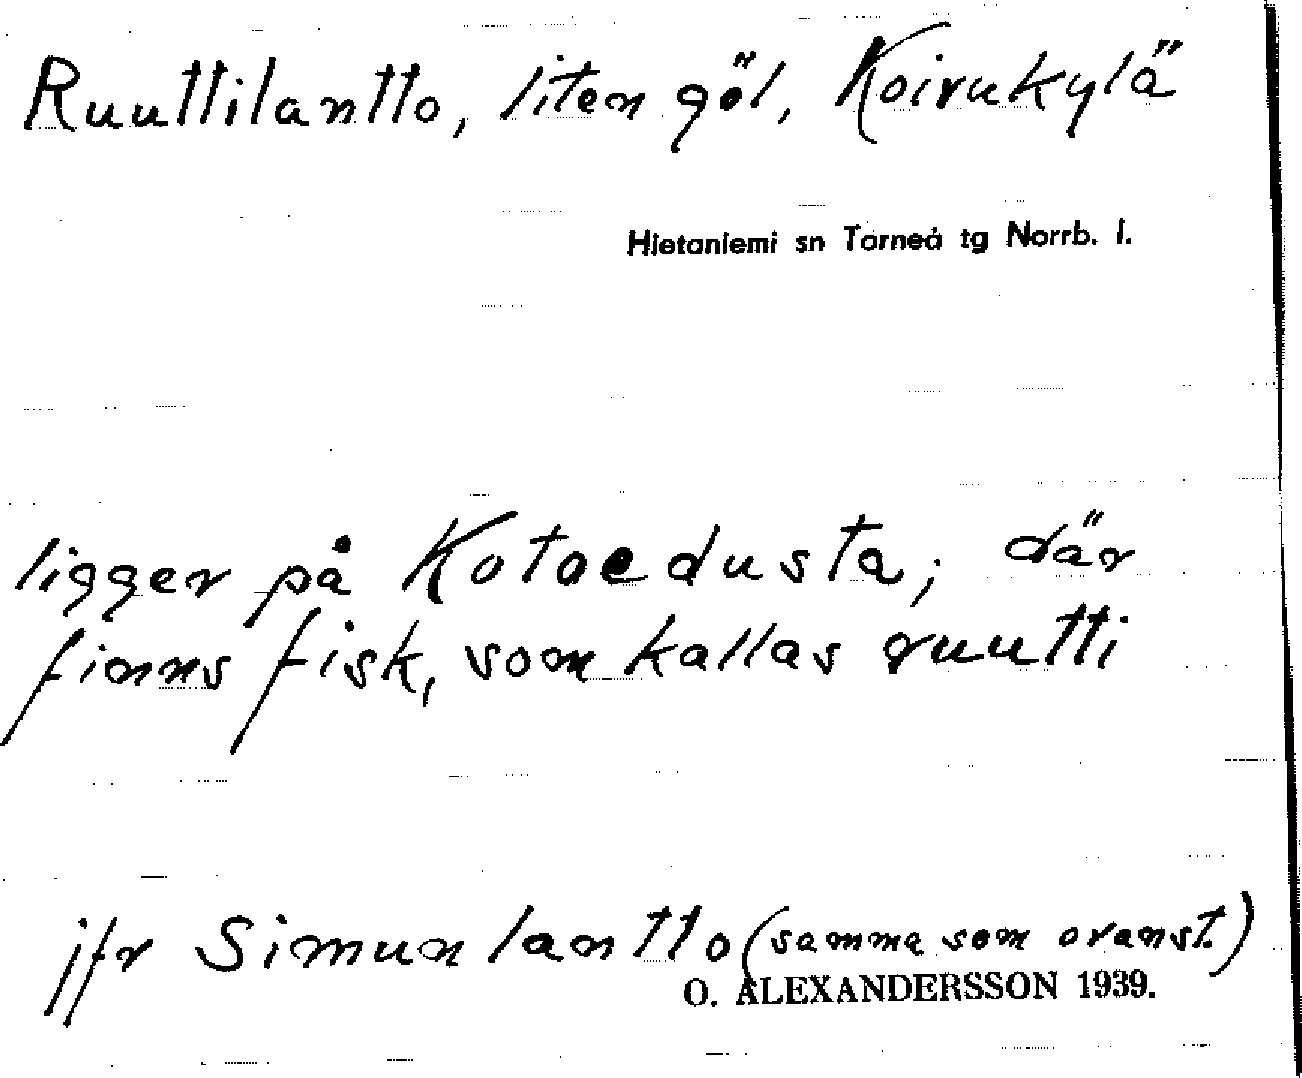 Ruuttilantto, liten göl, Koivukylä
Hietaniemi sn Torneå tg Norrb. l.
ligger på Kotoedusta; där
finns fisk, som kallas ruutti
jfr Simunlantto (samma som ovanst.)
O. ALEXANDERSSON 1939.